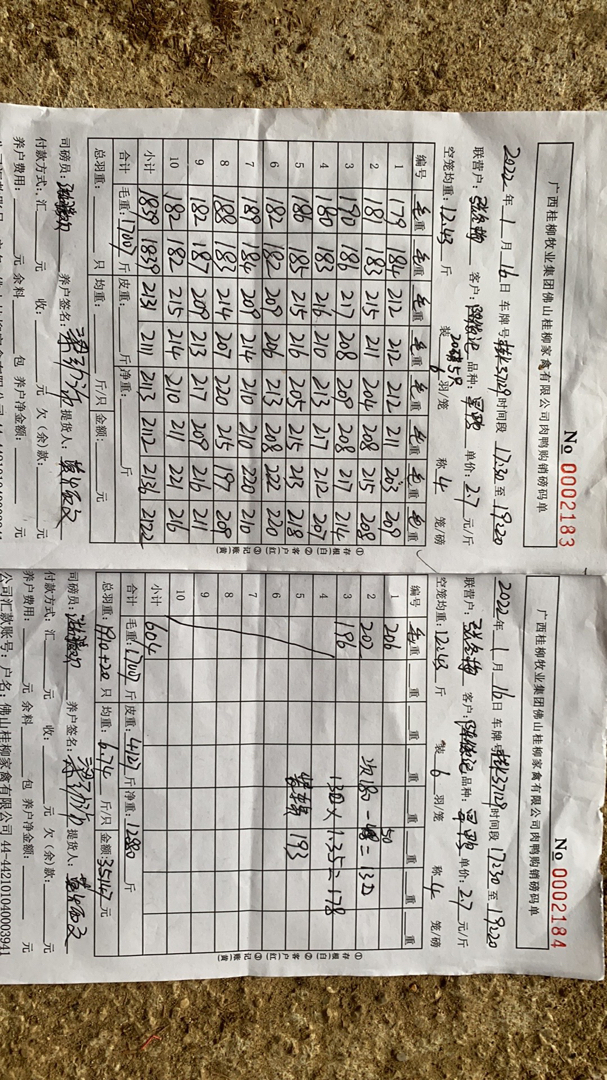 广西桂柳牧业集团佛山桂柳家禽有限公司肉鸭购销磅码单
No 0002183
2022年1月16日 车牌号 时间段 17:30 至 19:20
联营户: 客户: 品种: 单价: 2.7 元/斤
空笼均重: 12.43 斤 装 6 羽/笼 称 4 笼/磅
编号 毛重 毛重 毛重 毛重 毛重 毛重 毛重 毛重
1 179 184 212 212 212 211 203 209
2 181 183 215 211 204 208 215 208
3 190 186 217 208 209 208 217 214
4 180 183 216 210 213 217 212 207
5 186 185 215 216 205 215 213 218
6 182 182 209 206 213 208 222 220
7 189 184 209 214 210 210 220 210
8 188 183 214 207 220 215 197 209
9 182 187 209 213 217 209 216 211
10 182 182 215 214 210 211 221 216
小计 1839 1839 2131 2111 2113 2112 2136 2122
合计 毛重: 17007 斤 皮重: 斤 净重: 斤
总羽重: 只 均重: 斤/只 金额: 元
司磅员: 养户签名: 提货人:
付款方式: 汇 元 收: 元 欠(余)款: 元
养户费用: 元 余料 包 养户净金额: 元
①存根(白) ②客户(红) ③记账(黄)
广西桂柳牧业集团佛山桂柳家禽有限公司肉鸭购销磅码单
No 0002184
2022年1月16日 车牌号 时间段 17:30 至 19:20
联营户: 客户: 品种: 单价: 2.7 元/斤
空笼均重: 12.43 斤 装 6 羽/笼 称 4 笼/磅
编号 毛重 重 重 重 重 重 重 重
1 206
2 202
3 196
4
5
6
7
8
9
10
次180 - 50 = 130
130 × 1.35 = 178
193
小计 604
合计 毛重: 17007 斤 皮重: 4127 斤 净重: 12880 斤
总羽重: 1910+20 只 均重: 6.74 斤/只 金额: 35147 元
司磅员: 养户签名: 提货人:
付款方式: 汇 元 收: 元 欠(余)款: 元
养户费用: 元 余料 包 养户净金额: 元
公司汇款账号: 户名: 佛山桂柳家禽有限公司 44-442101040003941
①存根(白) ②客户(红) ③记账(黄)